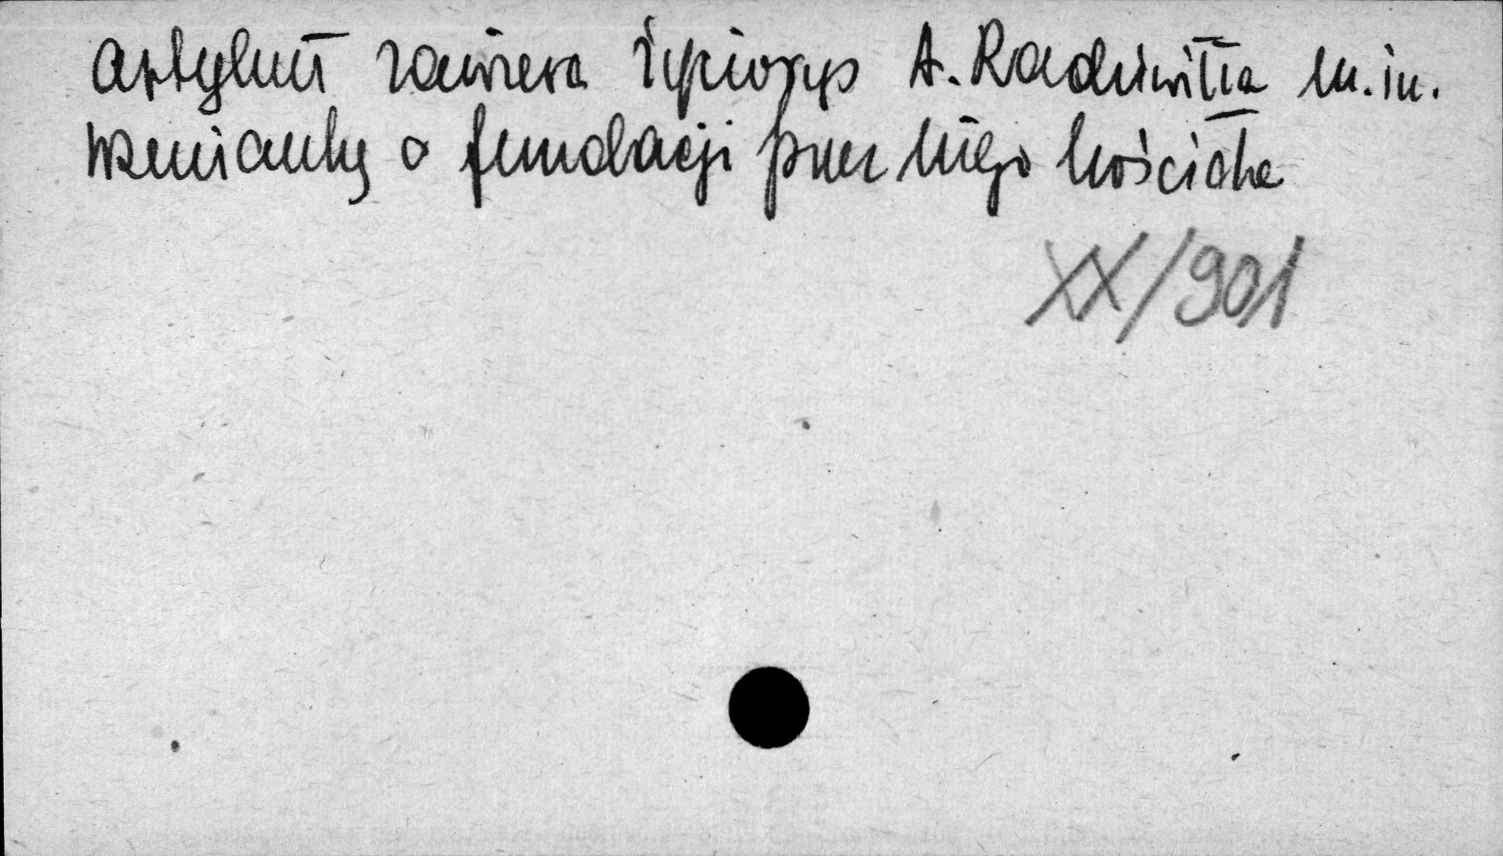 artykuł zawiera życiorys A. Radziwiłła m.in.
wzmiankę o fundacji przez niego kościoła
XX/901